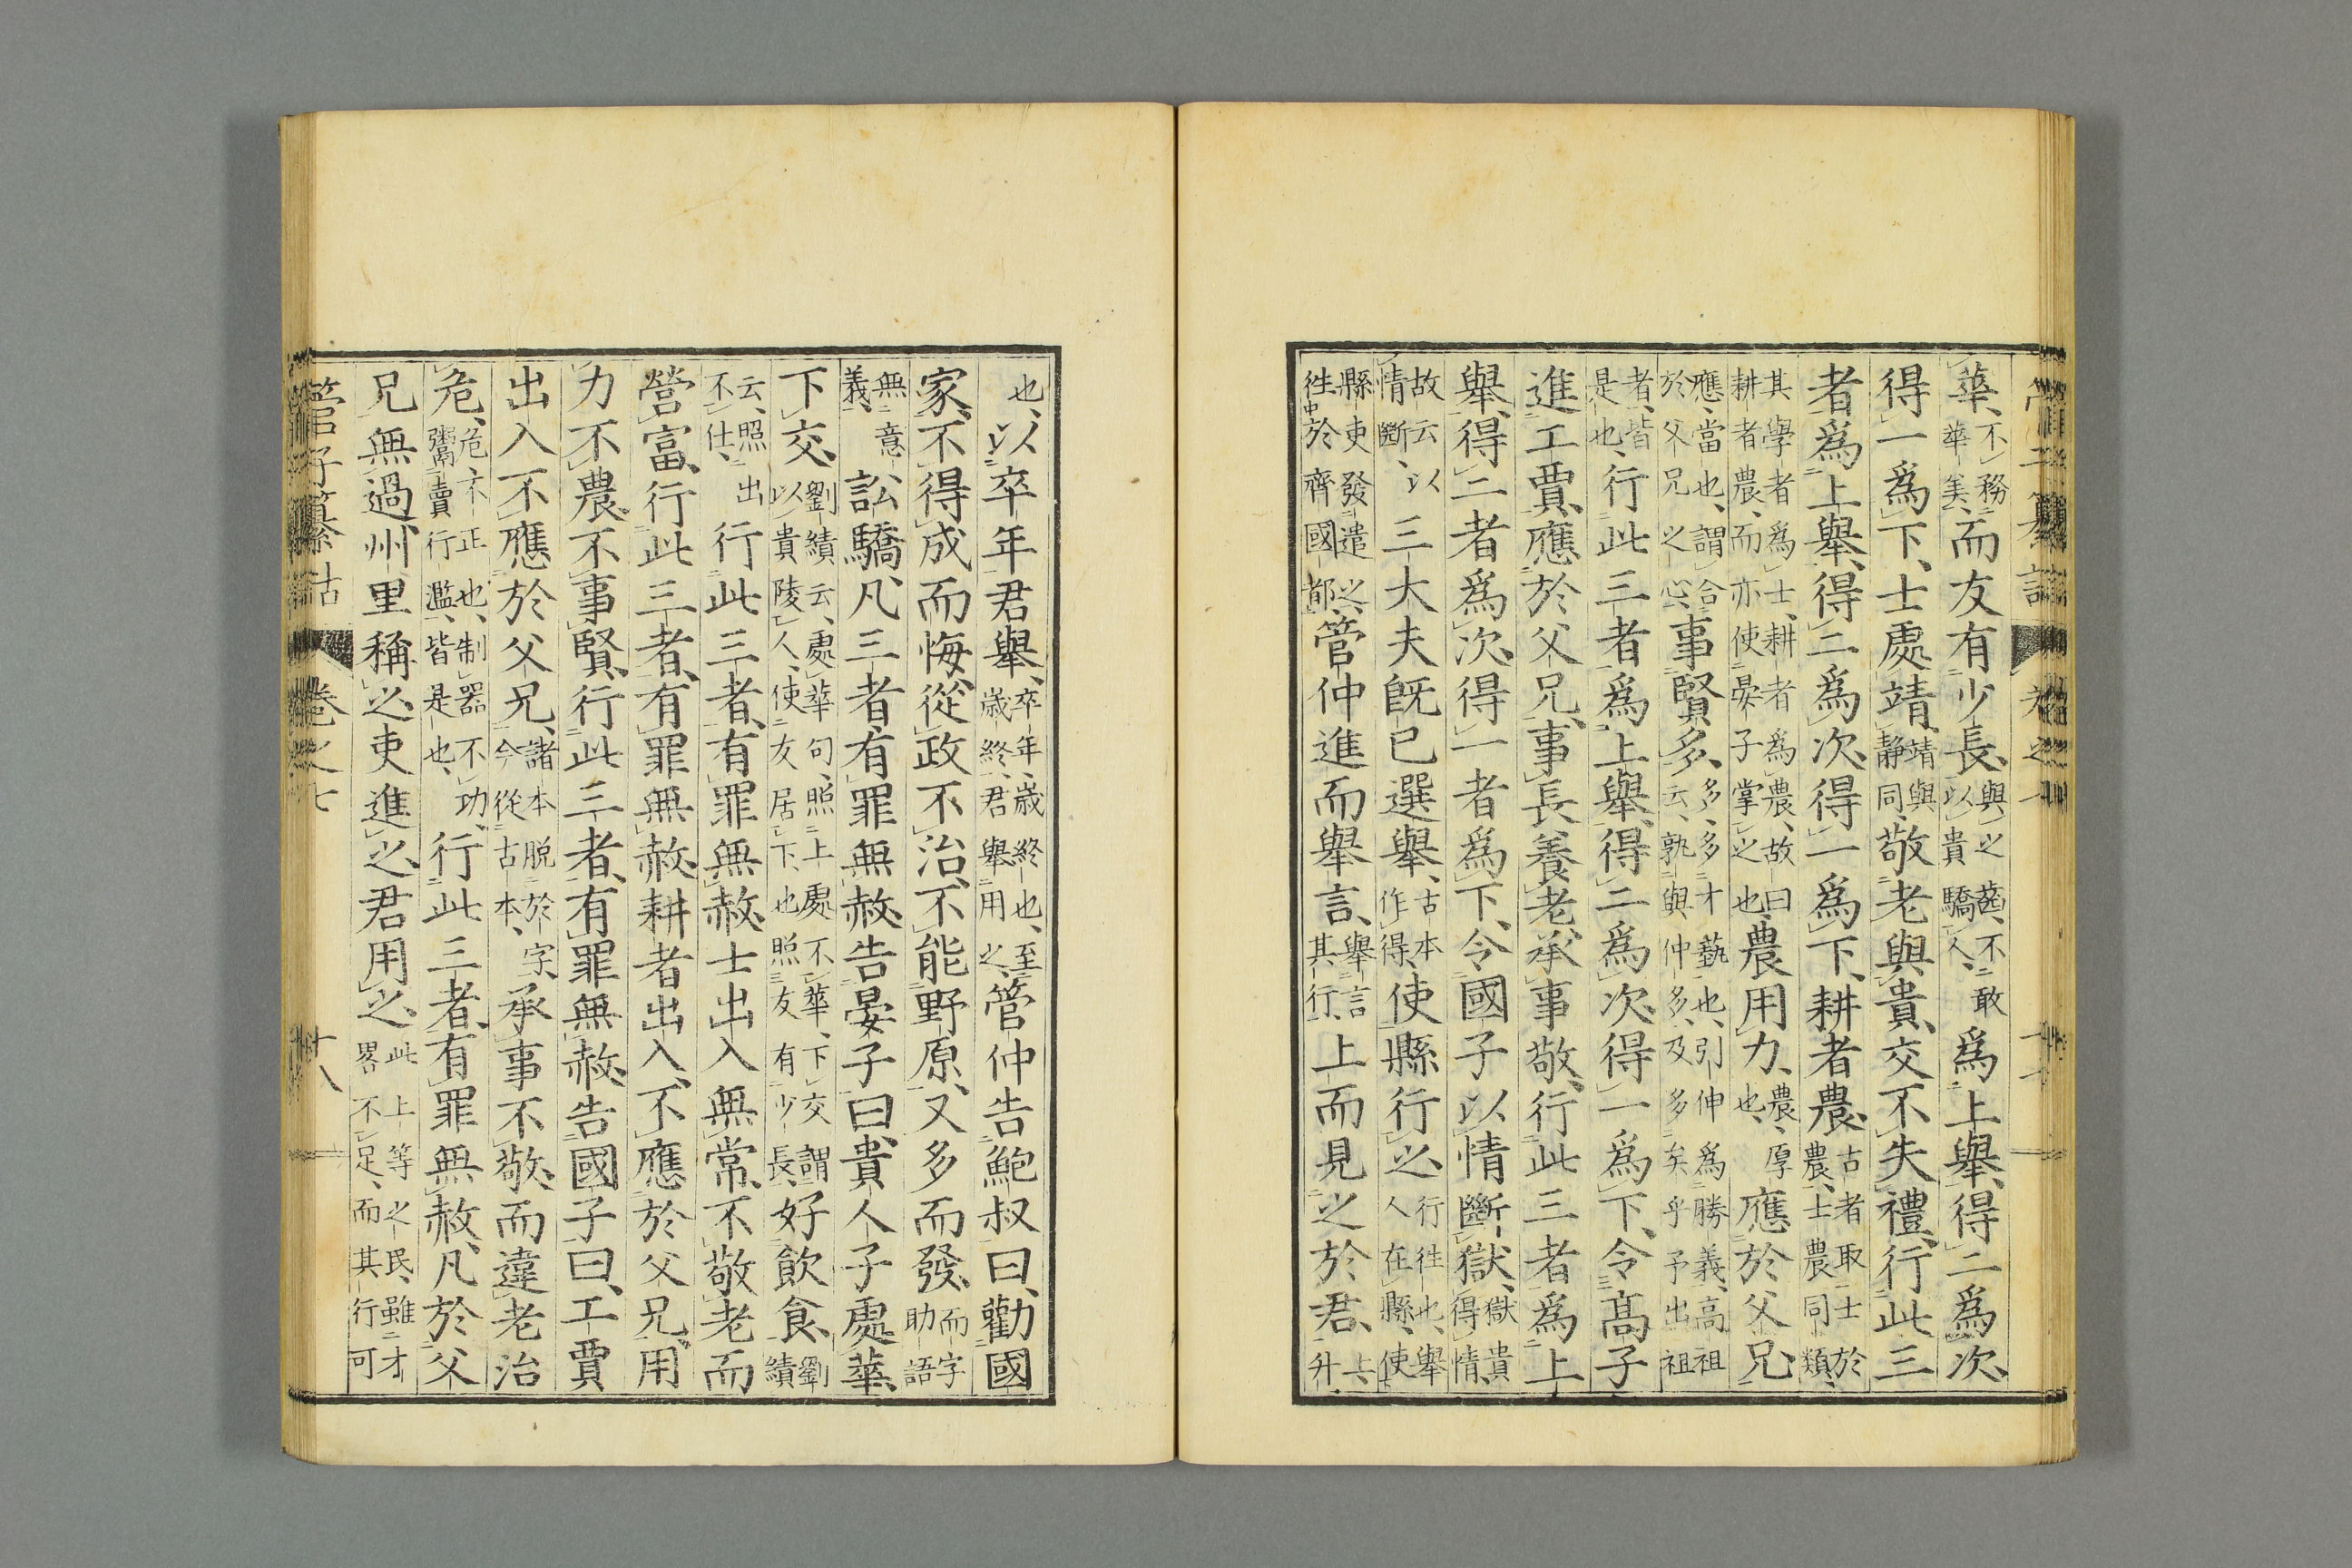 華、不務華美、而友有少長、與之齒、不敢以貴驕人、爲上舉、得二爲次、
得一爲下、士處靖、靖與靜同、敬老與貴、交不失禮、行此三
者爲上舉、得二爲次、得一爲下、耕者農、古者取士於農、士農同類、
其學者爲士、耕者爲農、故曰耕者農、而亦使晏子掌之也、農用力、農、厚也、應於父兄、
應、當也、謂合於父兄之心、事賢多、多、多才藝也、引伸爲勝義、高祖云、孰與仲多、及多矣乎予出祖
者、皆是也、行此三者爲上舉、得二爲次、得一爲下、令高子
進工賈、應於父兄、事長養老、承事敬、行此三者爲上
舉、得二者爲次、得一者爲下、令國子以情斷獄、獄貴得情、
故云以情斷、三大夫既已選舉、古本作得、使縣行之、行往也、舉人在縣、使
縣吏發遣之、往於齊國都、管仲進而舉言、舉言其行、上而見之於君、上、升
也、以卒年君舉、卒年、歲終也、至歲終、君舉用之、管仲告鮑叔曰、勸國
家、不得成而悔、從政不治、不能野原、又多而發、而字助語
無意義、訟驕、凡三者、有罪無赦、告晏子曰、貴人子處華、
下交、劉績云、處華句、照上處不華、下交謂以貴陵人、使友居下也、照友有少長、好飲食、劉績
云、照出不仕、行此三者、有罪無赦、士出入無常、不敬老而
營富、行此三者、有罪無赦、耕者出入、不應於父兄、用
力不農、不事賢、行此三者、有罪無赦、告國子曰、工賈
出入不應於父兄、諸本脱於字、今從古本、承事不敬、而違老治
危、危、不正也、制器不功、鬻賣行濫、皆是也、行此三者、有罪無赦、凡於父
兄無過、州里稱之、吏進之、君用之、此上等之民、雖才畧不足、而其行可
管子纂詁 卷之七 十八